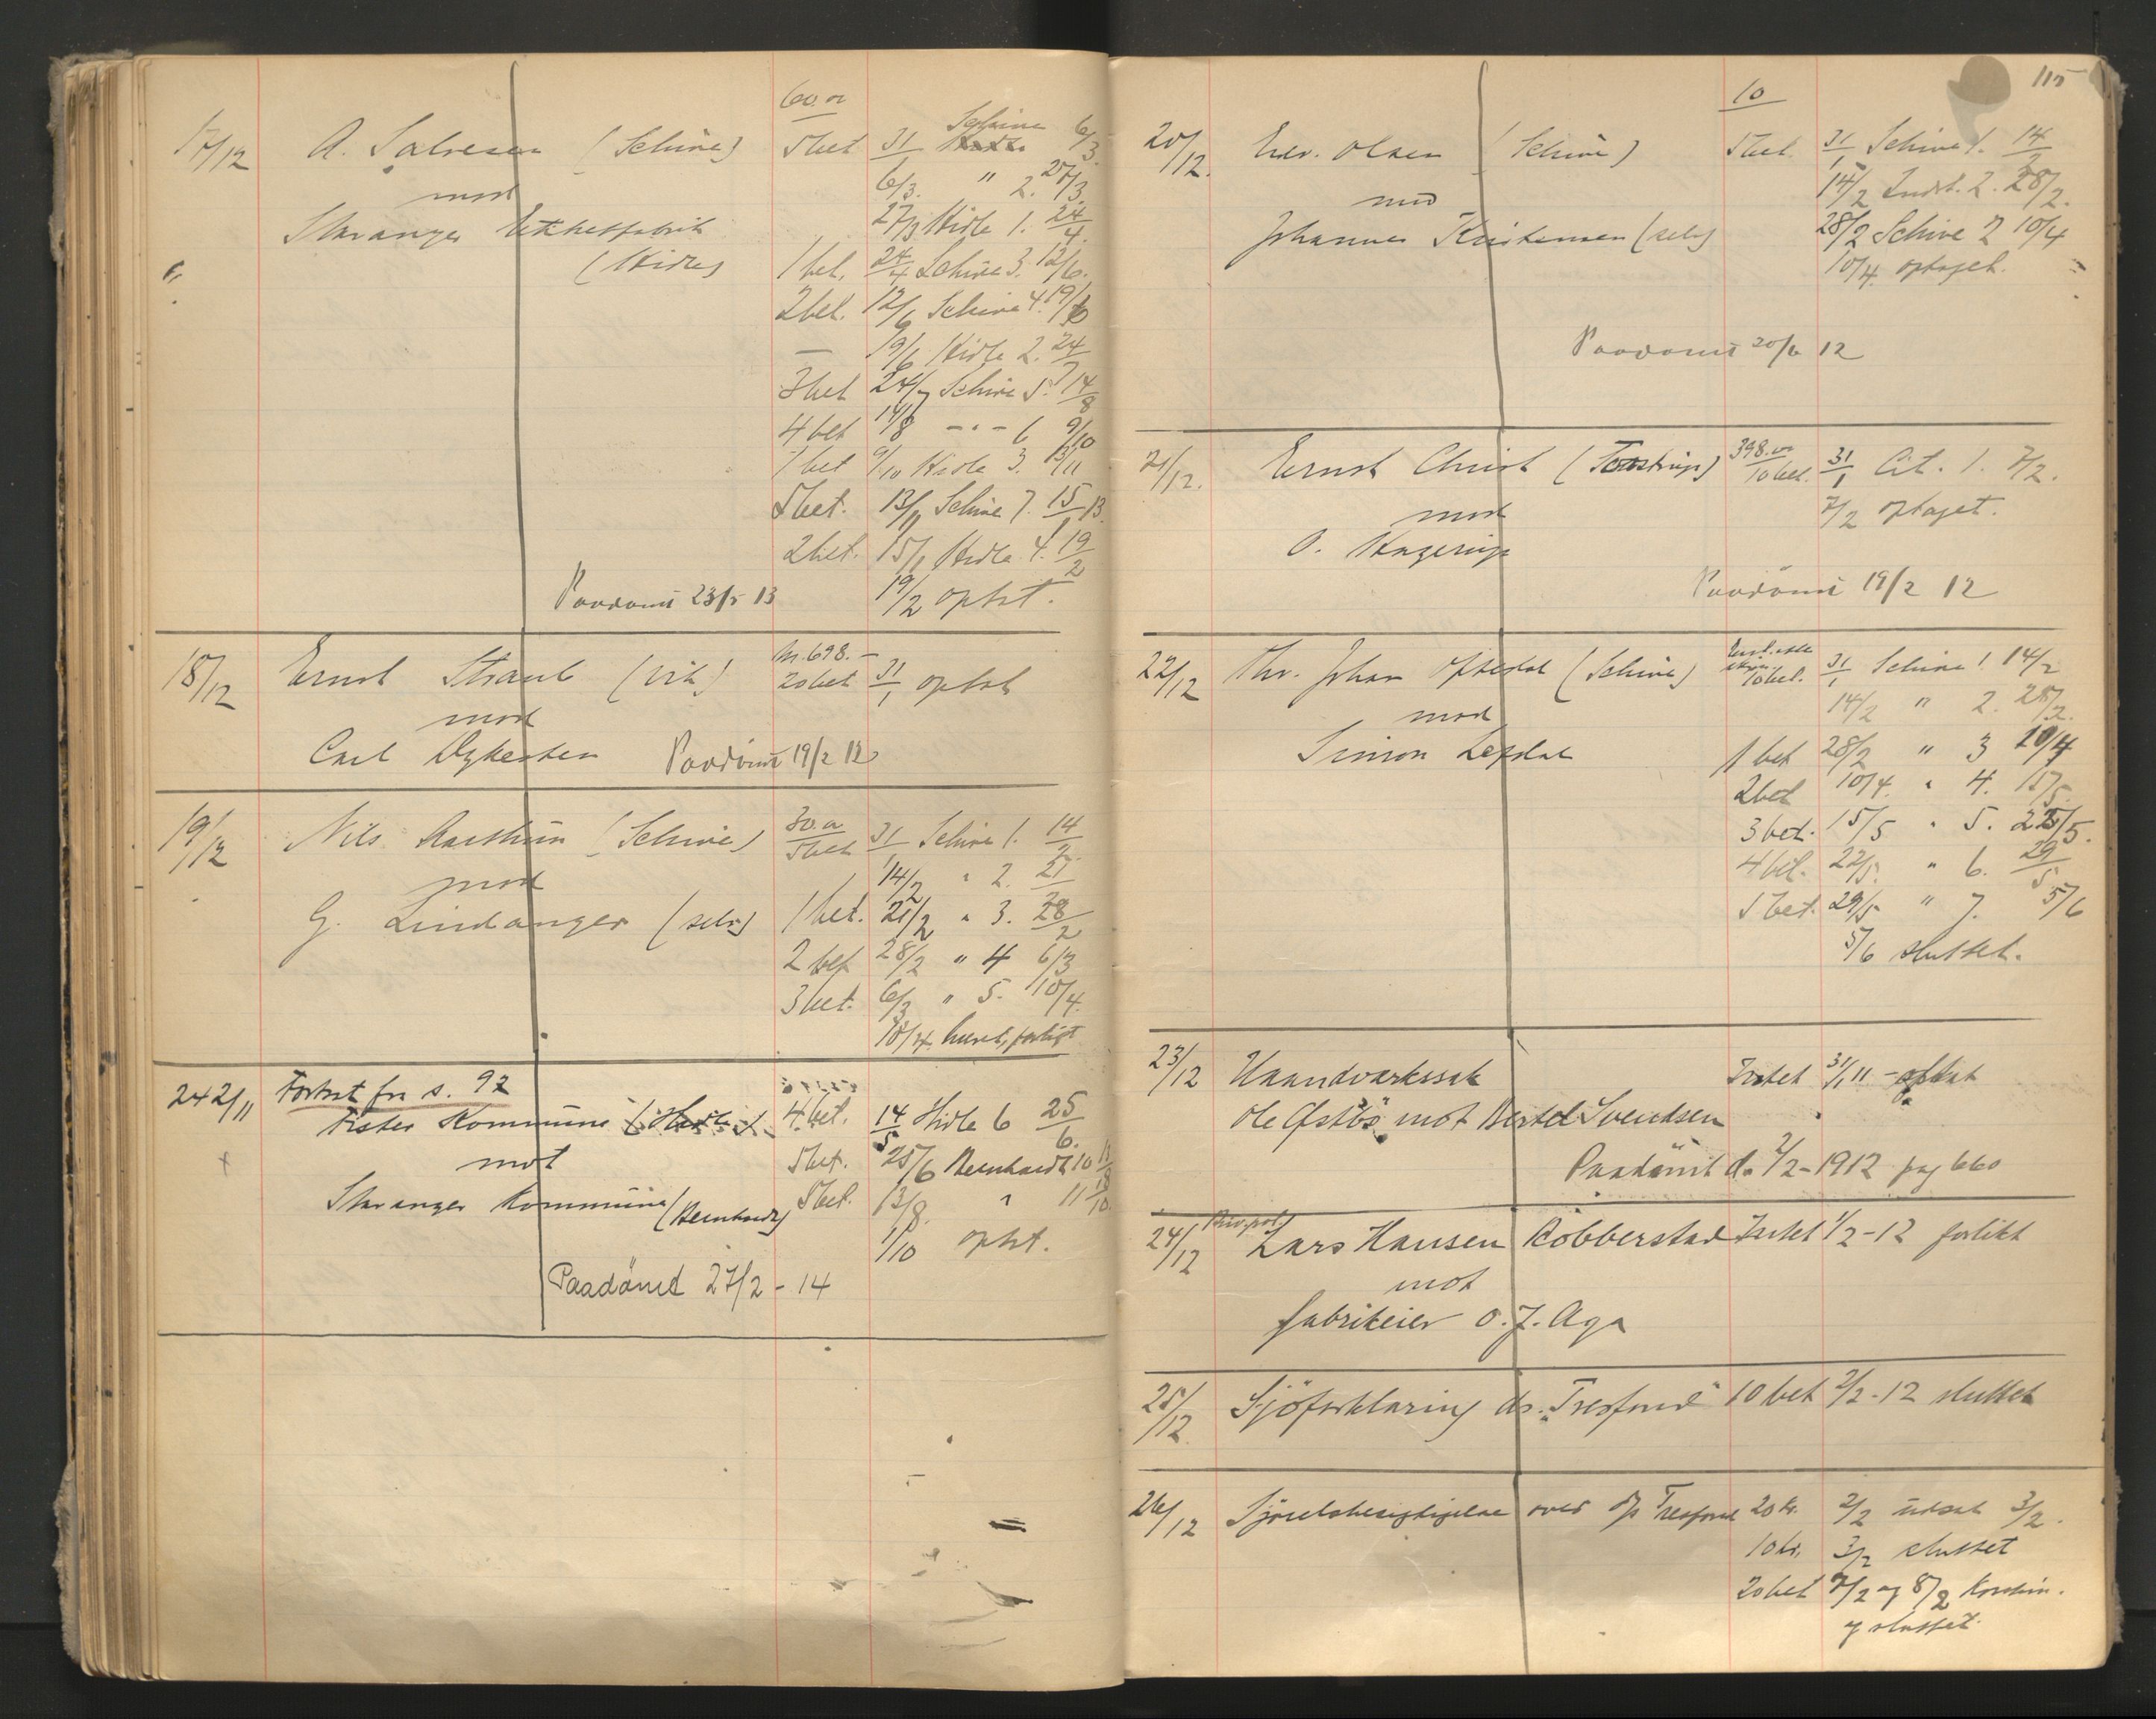 17/12 A. Salvesen (Schive) 5 bet 31/1 Schive 6/3
60.00
mod 6/3 " 2. 27/3
Stavanger (Hidle) 27/3 Hidle 1. 24/4
1 bet. 24/4 Schive 3. 12/6.
2 bet. 12/6 Schive 4. 19/6
— 19/6 Hidle 2. 24/7
3 bet 24/7 Schive 5. 14/8
4 bet 14/8 - " - 6 9/10
1 bet 9/10 Hidle 3. 13/11
5 bet. 13/11 Schive 7. 15/1 13.
2 bet. 15/1 Hidle 4. 19/2
Paadømt 23/5 13 19/2 optat.
18/12 Ernst Straub 20 bet 31/1 optat
mod
Carl Dykesten Paadømt 19/2 12
19/12 Nils (Schive) 30.00 5 bet 31/1 Schive 1. 14/2
mod 14/2 " 2. 21/2
G. Lindanger (selv) 1 bet. 21/2 " 3. 28/2
2 bet 28/2 " 4 6/3
3 bet. 6/3 " 5. 10/4.
10/4. hævet, forligt
242/11 Fortsat fra s. 92
Kommune 4 bet. 14/5 Hidle 6 25/6.
mot 5 bet. 25/6 Bernhardt 10 13/8
Stavanger Kommune (Bernhardt) 5 bet. 13/8. " 11 1/10.
1/10 optat.
Paadömt 27/2 - 14
115
20/12. Edv. Olsen (Schive) 10 5 bet. 31/1 Schive 1. 14/2
mod 14/2 Indst. 2. 28/2.
Johannes Kristensen (selv) 28/2 Schive 2 10/4
10/4. optaget.
Paadømt 20/6 12
21/12. Ernst Christ 398.00 10 bet. 31/1 Cit. 1. 7/2.
mod 7/2 optaget.
O. Hagerup
Paadömt 19/2 12
22/12 Thv. Johan Oftedal (Schive) 10 bet. 31/1 Schive 1. 14/2
mod 14/2 " 2. 28/2.
Simon 1 bet 28/2 " 3 10/4
2 bet 10/4. " 4. 15/5.
3 bet. 15/5 " 5. 22/5.
4 bet. 22/5. " 6. 29/5.
5 bet. 29/5 " 7. 5/6
5/6 sluttet.
23/12 Haandværkssak Intet 31/1 11 - optat
Ole Østbø mot Bertel Svendsen
Paadömt d. 2/2 - 1912 pag 660
24/12 Priv.pol. Lars Hansen Robberstad Intet 1/2 - 12 forlikt
mot
fabrikeier O. J. Aga
25/12 Sjöforklaring ds. "Tresfond" 10 bet 2/2 - 12 sluttet
26/12 Sjöretsbesigtigelse over d/s Tresfond 20 kr. 2/2 utsat 3/2.
10 kr. 3/2 sluttet
20 bet 7/2 og 8/2
og sluttet